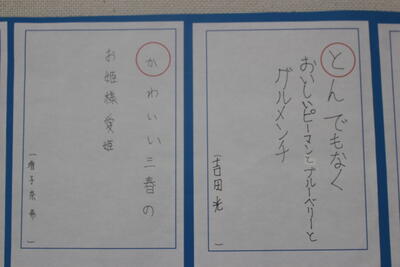 とんでもなく
おいしいピーマンとブルーベリーと
グルメンチ
吉田光
かわいい三春の
お姫様愛姫